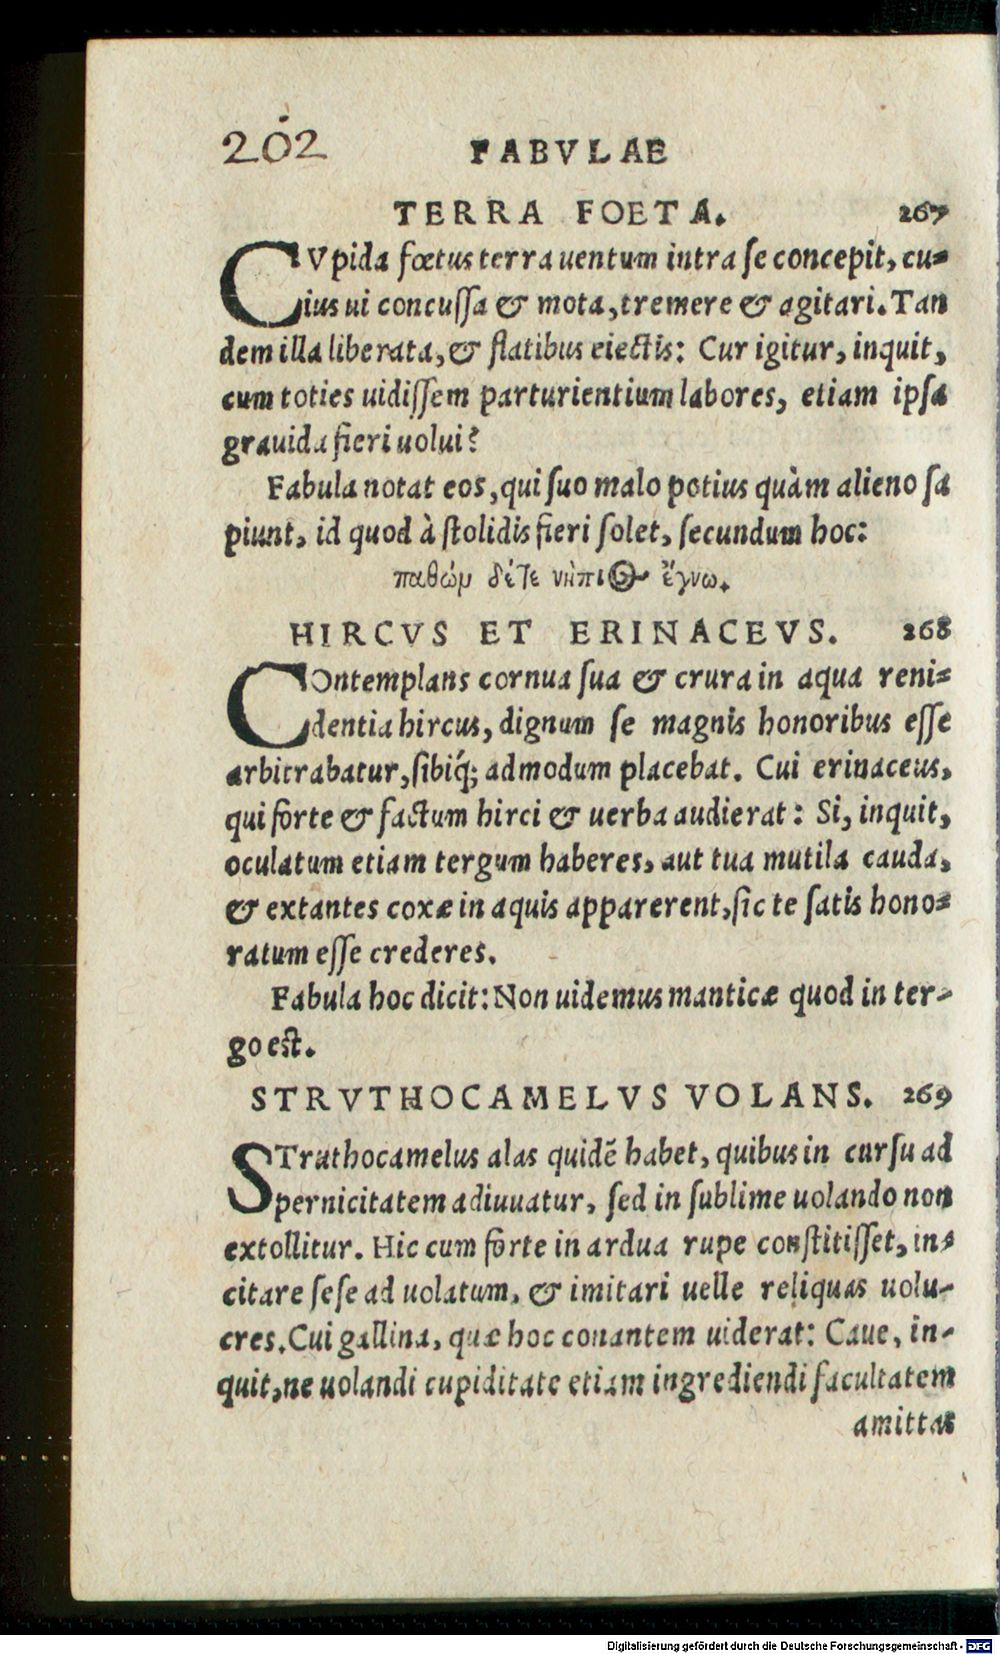 202 FABVLAE
TERRA FOETA. 267
CVpida fœtus terra uentum intra se concepit, cu-
ius ui concussa & mota, tremere & agitari. Tan
dem illa liberata, & flatibus eiectis: Cur igitur, inquit,
cum toties uidissem parturientium labores, etiam ipsa
grauida fieri uolui?
Fabula notat eos, qui suo malo potius quàm alieno sa
piunt, id quod à stolidis fieri solet, secundum hoc:
παθὼμ δέτε νήπιος ἔγνω.
HIRCVS ET ERINACEVS. 268
COntemplans cornua sua & crura in aqua reni-
dentia hircus, dignum se magnis honoribus esse
arbitrabatur, sibiq́; admodum placebat. Cui erinaceus,
qui forte & factum hirci & uerba audierat: Si, inquit,
oculatum etiam tergum haberes, aut tua mutila cauda,
& extantes coxæ in aquis apparerent, sic te satis hono-
ratum esse crederes.
Fabula hoc dicit: Non uidemus manticæ quod in ter-
go est.
STRVTHOCAMELVS VOLANS. 269
STruthocamelus alas quidē habet, quibus in cursu ad
pernicitatem adiuuatur, sed in sublime uolando non
extollitur. Hic cum forte in ardua rupe constitisset, in-
citare sese ad uolatum, & imitari uelle reliquas uolu-
cres. Cui gallina, quæ hoc conantem uiderat: Caue, in-
quit, ne uolandi cupiditate etiam ingrediendi facultatem
amittas
Digitalisierung gefördert durch die Deutsche Forschungsgemeinschaft - DFG